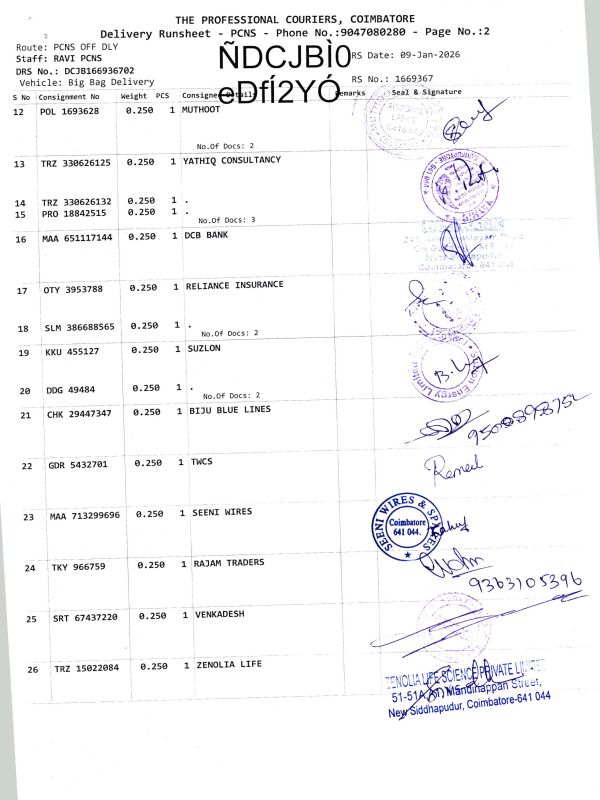 THE PROFESSIONAL COURIERS, COIMBATORE
Delivery Runsheet - PCNS - Phone No.:9047080280 - Page No.:2
Route: PCNS OFF DLY
Staff: RAVI PCNS
DRS No.: DCJB166936702
Vehicle: Big Bag Delivery
ÑDCJBÌ0
eDfÍ2YÓ
RS Date: 09-Jan-2026
RS No.: 1669367
S No Consignment No Weight PCS Consignee Details Remarks Seal & Signature
12 POL 1693628 0.250 1 MUTHOOT
No.Of Docs: 2
13 TRZ 330626125 0.250 1 YATHIQ CONSULTANCY
14 TRZ 330626132 0.250 1 .
15 PRO 18842515 0.250 1 .
No.Of Docs: 3
16 MAA 651117144 0.250 1 DCB BANK
Coimbatore 641 044
17 OTY 3953788 0.250 1 RELIANCE INSURANCE
18 SLM 386688565 0.250 1 .
No.Of Docs: 2
19 KKU 455127 0.250 1 SUZLON
20 DDG 49484 0.250 1 .
No.Of Docs: 2
21 CHK 29447347 0.250 1 BIJU BLUE LINES
22 GDR 5432701 0.250 1 TWCS
23 MAA 713299696 0.250 1 SEENI WIRES
SEENI WIRES & SPARES
Coimbatore
641 044.
24 TKY 966759 0.250 1 RAJAM TRADERS
9363105396
25 SRT 67437220 0.250 1 VENKADESH
26 TRZ 15022084 0.250 1 ZENOLIA LIFE
ZENOLIA LIFE SCIENCE PRIVATE LIMITED
51-51A, Mandihappan Street,
New Siddhapudur, Coimbatore-641 044